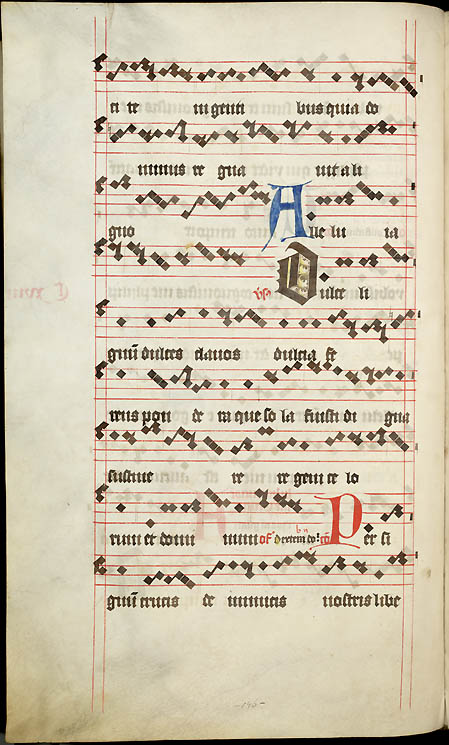 ci te in genti bus quia do
minus re gna uit a li
gno Alle lu ia
℣ Dulce li
gnū dulces clauos dulcia fe
rens pon de ra que so la fuisti di gna
sustine re re gem ce lo
rum et domi num of Dextera do! cō Per si
gnū crucis de inimicis nostris libe